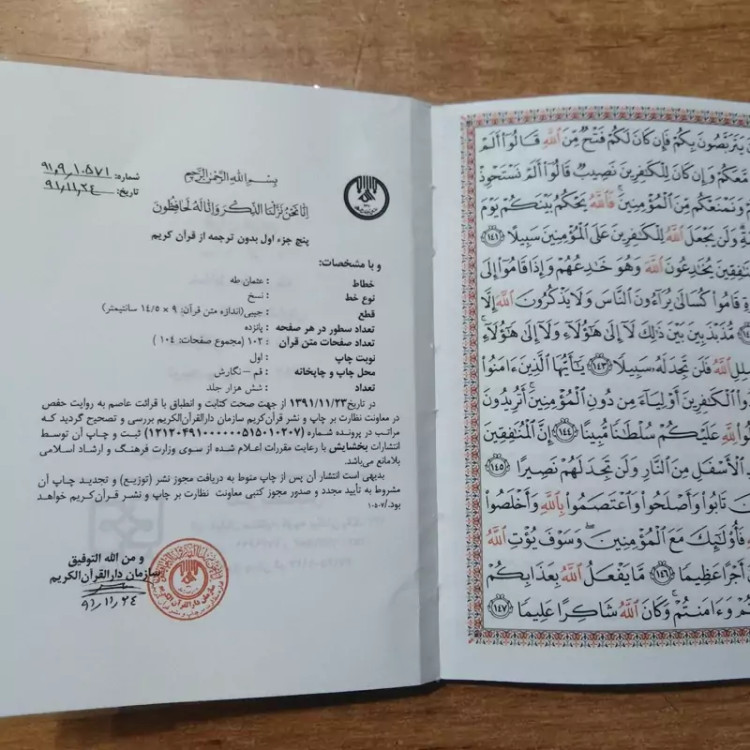 شماره: ۹۱,۹,۱۰۵۷۱
تاریخ: ۹۱,۱۱,۲۴
بِسْمِ اللهِ الرَّحْمٰنِ الرَّحِیمِ
اِنّا نَحْنُ نَزَّلْنَا الذِّكْرَ وَاِنّا لَهُ لَحافِظُونَ
پنج جزء اول بدون ترجمه از قرآن کریم
و با مشخصات:
خطاط : عثمان طه
نوع خط : نسخ
قطع : جیبی(اندازه متن قرآن: ۹ × ۱۴/۵ سانتیمتر)
تعداد سطور در هر صفحه : پانزده
تعداد صفحات متن قرآن : ۱۰۲ (مجموع صفحات: ۱۰۴ )
نوبت چاپ : اول
محل چاپ و چاپخانه : قم – نگارش
تعداد : شش هزار جلد
در تاریخ ۱۳۹۱/۱۱/۲۳ از جهت صحت کتابت و انطباق با قرائت عاصم به روایت حفص
در معاونت نظارت بر چاپ و نشر قرآن کریم سازمان دارالقرآن‌الکریم بررسی و تصحیح گردید که
مراتب در پرونده شماره (۱۲۱۲۰۴۹۱۰۰۰۰۰۰۵۱۵۰۱۰۲۰۷) ثبت و چاپ آن توسط
انتشارات بخشایش با رعایت مقررات اعلام شده از سوی وزارت فرهنگ و ارشاد اسلامی
بلامانع می‌باشد.
بدیهی است انتشار آن پس از چاپ منوط به دریافت مجوز نشر (توزیع) و تجدید چاپ آن
مشروط به تأیید مجدد و صدور مجوز کتبی معاونت نظارت بر چاپ و نشر قرآن کریم خواهد
بود./۱۰۵۰۷
و من الله التوفیق
سازمان دارالقرآن‌الکریم
۹۱,۱۱,۲۴
يَتَرَبَّصُونَ بِكُمْ فَإِن كَانَ لَكُمْ فَتْحٌ مِّنَ ٱللَّهِ قَالُوٓا۟ أَلَمْ
مَّعَكُمْ وَإِن كَانَ لِلْكَٰفِرِينَ نَصِيبٌ قَالُوٓا۟ أَلَمْ نَسْتَحْوِذْ
وَنَمْنَعْكُم مِّنَ ٱلْمُؤْمِنِينَ ۚ فَٱللَّهُ يَحْكُمُ بَيْنَكُمْ يَوْمَ
وَلَن يَجْعَلَ ٱللَّهُ لِلْكَٰفِرِينَ عَلَى ٱلْمُؤْمِنِينَ سَبِيلًا ﴿١٤١﴾
يُخَٰدِعُونَ ٱللَّهَ وَهُوَ خَٰدِعُهُمْ وَإِذَا قَامُوٓا۟ إِلَى
قَامُوا۟ كُسَالَىٰ يُرَآءُونَ ٱلنَّاسَ وَلَا يَذْكُرُونَ ٱللَّهَ إِلَّا
مُّذَبْذَبِينَ بَيْنَ ذَٰلِكَ لَآ إِلَىٰ هَٰٓؤُلَآءِ وَلَآ إِلَىٰ هَٰٓؤُلَآءِ ۚ
ٱللَّهُ فَلَن تَجِدَ لَهُۥ سَبِيلًا ﴿١٤٣﴾ يَٰٓأَيُّهَا ٱلَّذِينَ ءَامَنُوا۟
ٱلْكَٰفِرِينَ أَوْلِيَآءَ مِن دُونِ ٱلْمُؤْمِنِينَ ۚ أَتُرِيدُونَ
لِلَّهِ عَلَيْكُمْ سُلْطَٰنًا مُّبِينًا ﴿١٤٤﴾ إِنَّ ٱلْمُنَٰفِقِينَ
ٱلْأَسْفَلِ مِنَ ٱلنَّارِ وَلَن تَجِدَ لَهُمْ نَصِيرًا ﴿١٤٥﴾
تَابُوا۟ وَأَصْلَحُوا۟ وَٱعْتَصَمُوا۟ بِٱللَّهِ وَأَخْلَصُوا۟
فَأُو۟لَٰٓئِكَ مَعَ ٱلْمُؤْمِنِينَ ۖ وَسَوْفَ يُؤْتِ ٱللَّهُ
أَجْرًا عَظِيمًا ﴿١٤٦﴾ مَّا يَفْعَلُ ٱللَّهُ بِعَذَابِكُمْ
وَءَامَنتُمْ ۚ وَكَانَ ٱللَّهُ شَاكِرًا عَلِيمًا ﴿١٤٧﴾